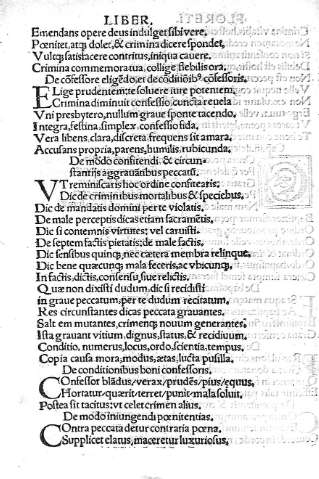 LIBER.
Emendans opere deus indulget sibi vere,
Pœnitet, atq; dolet, & crimina dicere spondet,
Vultq; satisfacere contritus, iniqua cavere.
Crimina commemora tua, collige flebilis ora.
De cõfessore eligẽdo et de cõditioĩbꝰ cõfessoris.
ELige prudentem, te soluere iure potentem.
Crimina diminuit confessio cuncta reuela
Vni presbytero, nullum graue sponte tacendo.
Integra, festina, simplex, confessio fida,
Vera libens, clara, discreta frequens sit amara,
Accusans propria, parens, humilis, rubicunda.
De modo confitendi & circun-
stantijs aggrauantibus peccatũ.
VT reminiscaris hoc ordine confitearis:
Dic de criminibus mortalibus & speciebus.
Dic de mandatis domini per te violatis.
De male perceptis dicas etiam sacrametis,
Dic si contemnis virtutes: vel caruisti.
De septem factis pietatis: de male factis,
Dic sensibus quinq; nec cætera membra relinque,
Dic bene quæcunq; mala feceris, ac vbicunq;,
In factis, dictis, consensu, siue relictis.
Quæ non dixisti dudum, dic si recidisti
in graue peccatum, per te dudum recitatum.
Res circunstantes dicas peccata grauantes.
Salt em mutantes, crimenq; nouum generantes.
Ista grauant vitium, dignus, status, & recidiuum,
Conditio, numerus, locus, ordo, scientia, tempus,
Copia causa mora; modus, ætas, lucta pusilla.
De conditionibus boni confessoris.
COnfessor blãdus / verax / prudẽs / pius / equus,
Hortatur / quærit / terret / punit mala soluit.
Postea sit tacitus: vt celet crimen alius.
De modo iniungendi pœnitentias.
COntra peccata detur contraria pœna.
Supplicet elatus, maceretur luxuriosus,